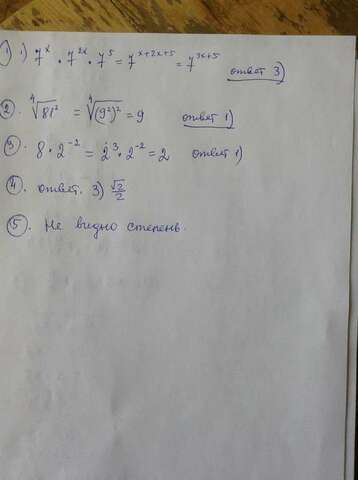 1) 1) 7^x · 7^2x · 7^5 = 7^x+2x+5 = 7^3x+5 ответ 3)
2. ⁴√81² = ⁴√(9²)² = 9 ответ 1)
3. 8 · 2^-2 = 2^3 · 2^-2 = 2 ответ 1)
4. ответ. 3) √2/2
5. Не видно степень.